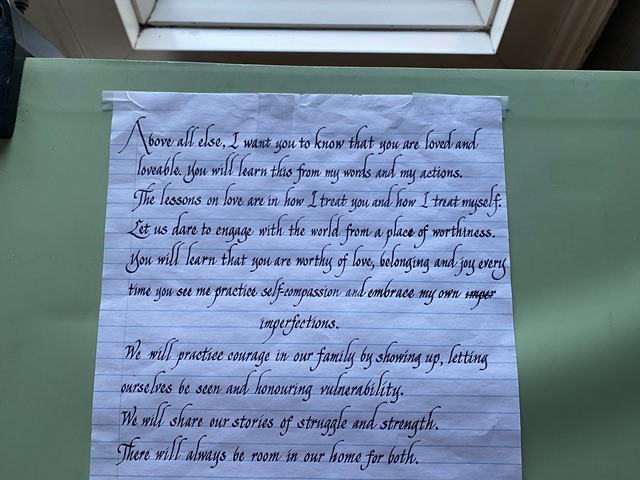 Above all else, I want you to know that you are loved and
loveable. You will learn this from my words and my actions.
The lessons on love are in how I treat you and how I treat myself.
Let us dare to engage with the world from a place of worthiness.
You will learn that you are worthy of love, belonging and joy every
time you see me practice self-compassion and embrace my own imper
imperfections.
We will practice courage in our family by showing up, letting
ourselves be seen and honouring vulnerability.
We will share our stories of struggle and strength.
There will always be room in our home for both.